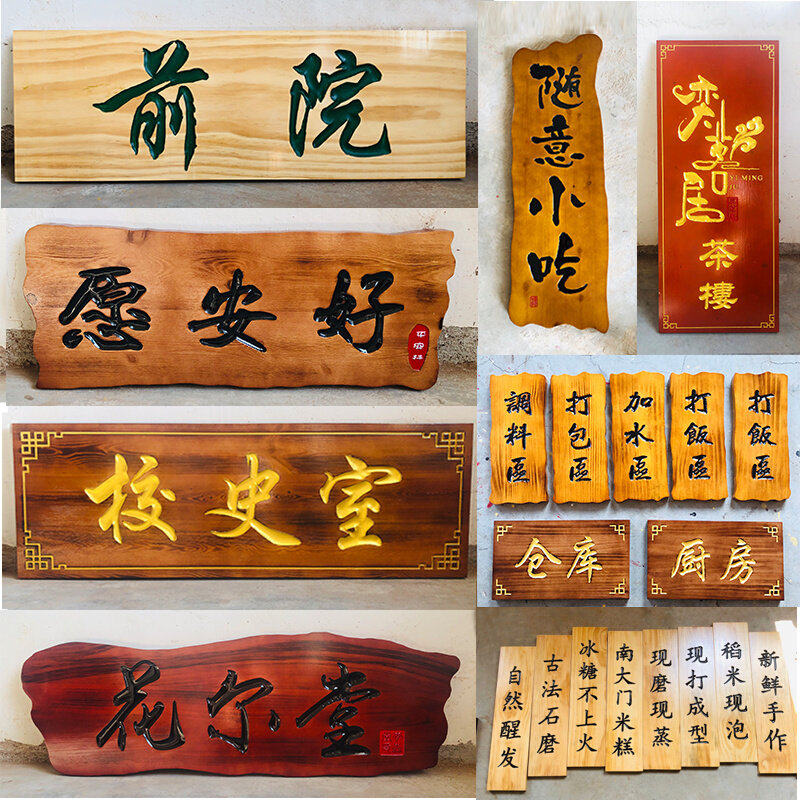 前院
愿安好
平安林
校史室
花尔堂
随意小吃
居
YI MING
JU
茶樓
調料區
打包區
加水區
打飯區
打飯區
仓库
厨房
自然醒发
古法石磨
冰糖不上火
南大门米糕
现磨现蒸
现打成型
稻米现泡
新鲜手作